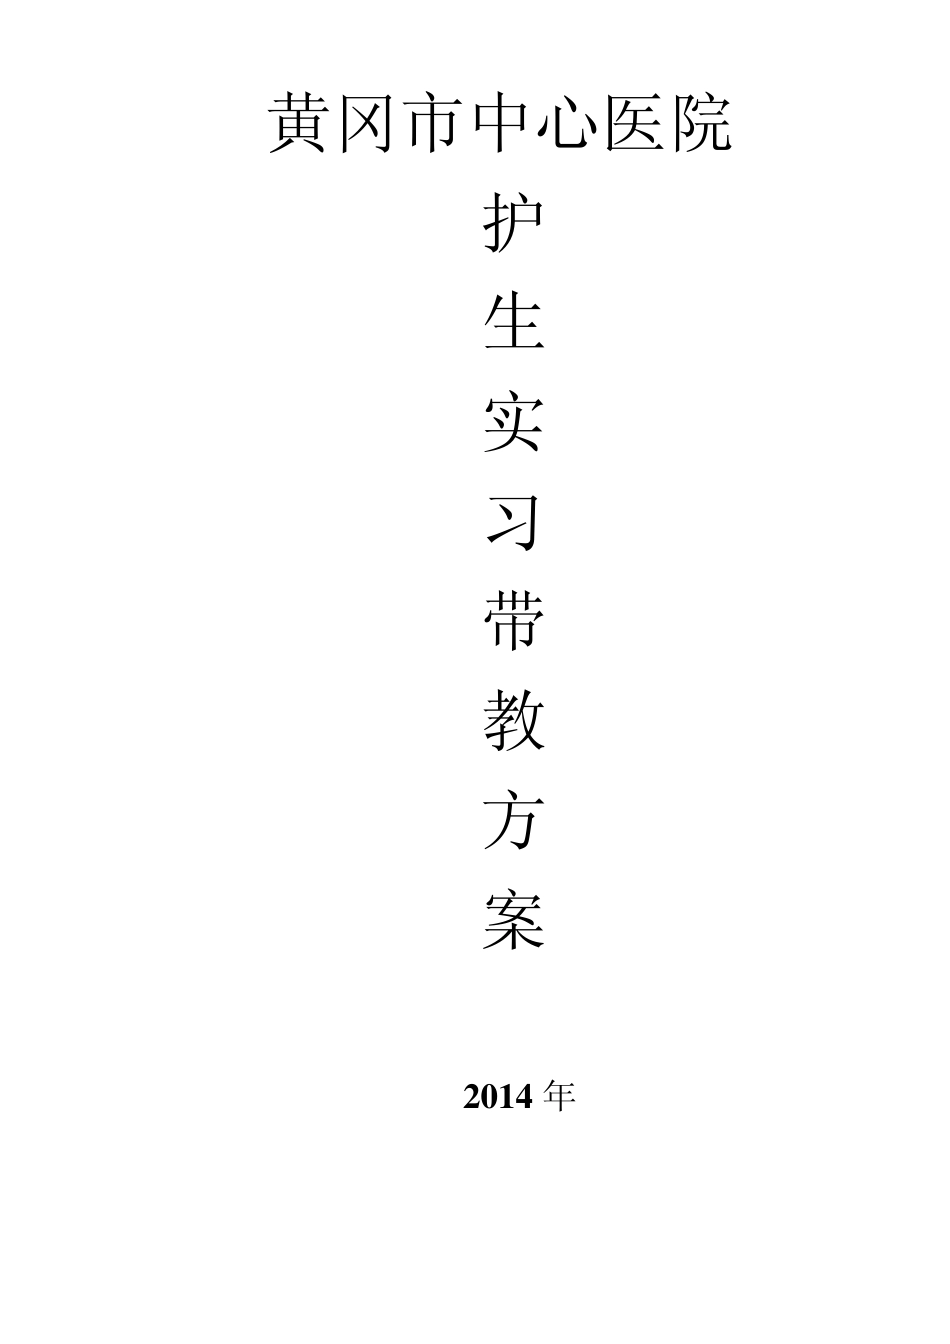 黄冈市中心医院
护
生
实
习
带
教
方
案
2014 年